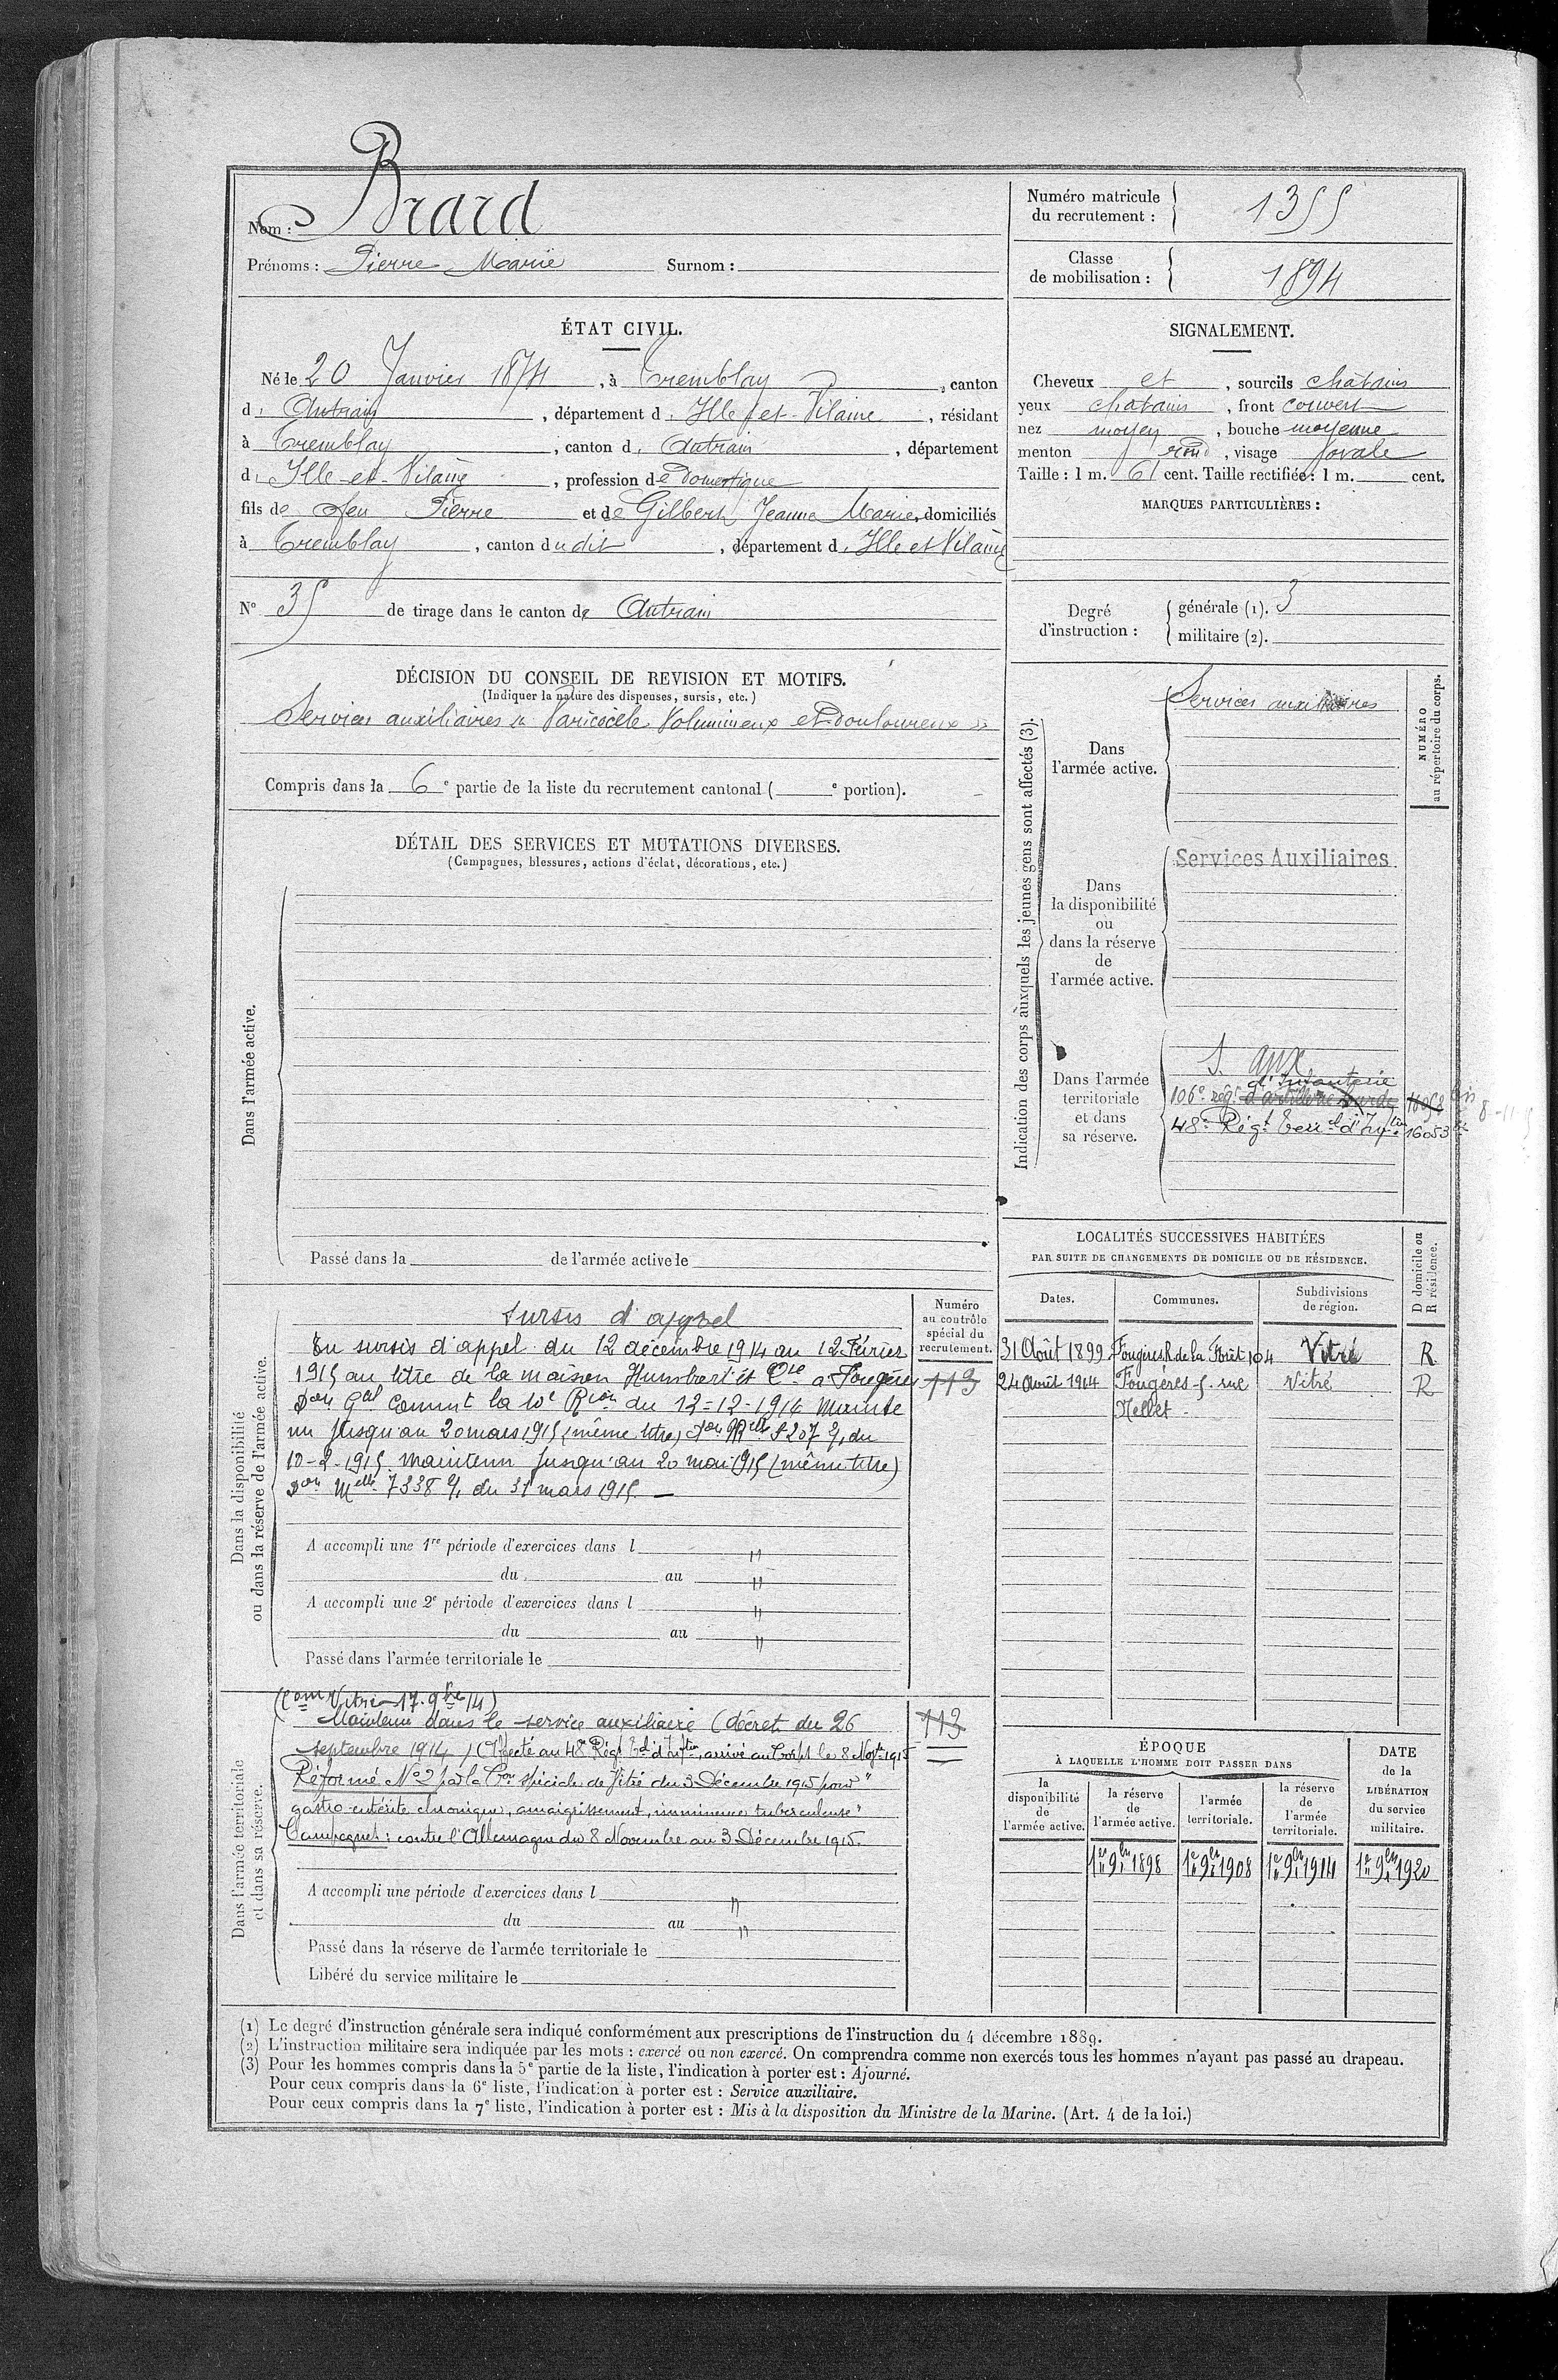 Nom : Brard
Prénoms : Pierre Marie Surnom :
Numéro matricule du recrutement : 1355
Classe de mobilisation : 1894
ÉTAT CIVIL.
Né le 20 Janvier 1874, à Tremblay, canton
d. Antrain, département d. Ille-et-Vilaine, résidant
à Tremblay, canton d. Antrain, département
d. Ille-et-Vilaine, profession de Domestique
fils de feu Pierre et de Gilbert Jeanne Marie, domiciliés
à Tremblay, canton dudit, département d. Ille et Vilaine
N° 35 de tirage dans le canton de Antrain
SIGNALEMENT.
Cheveux et, sourcils châtains
yeux chatains, front couvert
nez moyen, bouche moyenne
menton rond, visage ovale
Taille : 1 m. 61 cent. Taille rectifiée : 1 m. cent.
MARQUES PARTICULIÈRES :
Degré d'instruction :
générale (1). 3
militaire (2).
DÉCISION DU CONSEIL DE REVISION ET MOTIFS.
(Indiquer la nature des dispenses, sursis, etc.)
Services auxiliaires Varicocèle Volumineux et douloureux
Compris dans la 6e partie de la liste du recrutement cantonal ( e portion).
DÉTAIL DES SERVICES ET MUTATIONS DIVERSES.
(Campagnes, blessures, actions d'éclat, décorations, etc.)
Dans l'armée active.
Passé dans la de l'armée active le
Indication des corps auxquels les jeunes gens sont affectés (3).
NUMÉRO au répertoire du corps.
Dans l'armée active.
Services auxiliaires
Dans la disponibilité ou dans la réserve de l'armée active.
Services Auxiliaires
Dans l'armée territoriale et dans sa réserve.
S. aux
d'Infanterie
106e rég. d'artillerie lourde
48e Régt Terral d'Inftie 16053
LOCALITÉS SUCCESSIVES HABITÉES
PAR SUITE DE CHANGEMENTS DE DOMICILE OU DE RÉSIDENCE.
Dates. Communes. Subdivisions de région. D domicile ou R résidence.
31 Août 1899 Fougères R. de la Forêt 104 Vitré R
24 Août 1914 Fougères 5. rue Vitré R
Mellet
Dans la disponibilité ou dans la réserve de l'armée active.
Numéro au contrôle spécial du recrutement.
113
Sursis d'appel
En sursis d'appel du 12 décembre 1914 au 12 Février
1915 au titre de la maison Humbert et Cie à Fougères
Don Gal Commt la 10e Rion du 12-12-1914 Mainte
nu jusqu'au 20 mars 1915 (même titre) Don Melle 5207 du
10-2-1915 maintenu jusqu'au 20 mai 1915 (même titre)
Don Melle 7338 du 31 mars 1915.
A accompli une 1re période d'exercices dans l "
du au "
A accompli une 2e période d'exercices dans l "
du au "
Passé dans l'armée territoriale le
Dans l'armée territoriale et dans sa réserve.
(Com Vitré 17. 9bre 14)
113
Maintenu dans le service auxiliaire (décret du 26
septembre 1914) Affecté au 48e Régt Tal d'Inftie, arrivé au Corps le 8 Novbre 1915
Réformé N° 2 par la Con spéciale de Vitré du 3 Décembre 1915 pour "
gastro-entérite chronique, amaigrissement, imminence tuberculeuse"
Campagnes : contre l'Allemagne du 8 Novembre au 3 Décembre 1915.
A accompli une période d'exercices dans l "
du au "
Passé dans la réserve de l'armée territoriale le
Libéré du service militaire le
ÉPOQUE
À LAQUELLE L'HOMME DOIT PASSER DANS
la disponibilité de l'armée active.
la réserve de l'armée active.
l'armée territoriale.
la réserve de l'armée territoriale.
DATE de la LIBÉRATION du service militaire.
1er 9bre 1898 1er 9bre 1908 1er 9bre 1914 1er 9bre 1920
(1) Le degré d'instruction générale sera indiqué conformément aux prescriptions de l'instruction du 4 décembre 1889.
(2) L'instruction militaire sera indiquée par les mots : exercé ou non exercé. On comprendra comme non exercés tous les hommes n'ayant pas passé au drapeau.
(3) Pour les hommes compris dans la 5e partie de la liste, l'indication à porter est : Ajourné.
Pour ceux compris dans la 6e liste, l'indication à porter est : Service auxiliaire.
Pour ceux compris dans la 7e liste, l'indication à porter est : Mis à la disposition du Ministre de la Marine. (Art. 4 de la loi.)